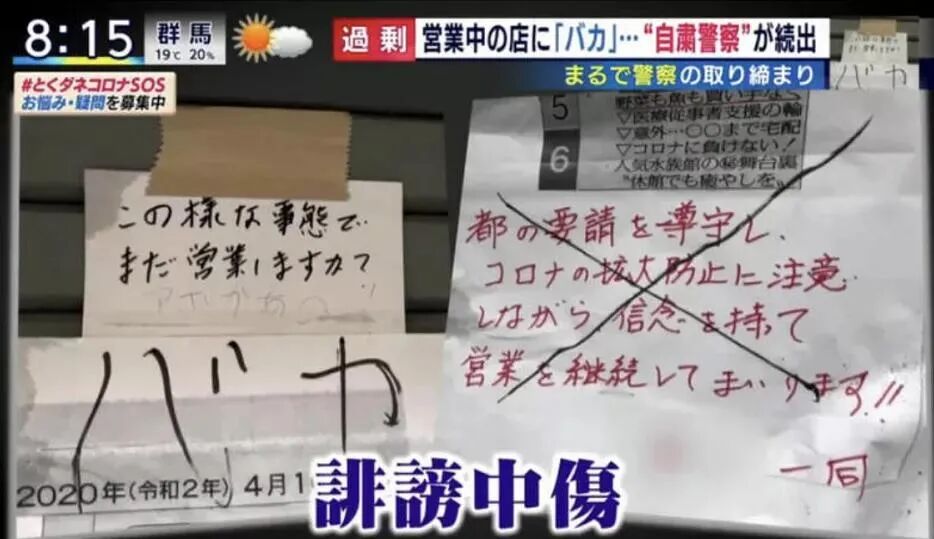 8:15
群馬
19℃ 20%
過剰
営業中の店に「バカ」…“自粛警察”が続出
まるで警察の取り締まり
#とくダネコロナSOS
お悩み・疑問を募集中
バカ
この様な事態で
まだ営業しますか?
バカ
2020年(令和2年) 4月1
5
6
野菜も魚も買い手なく
▽医療従事者支援の輪
▽意外…〇〇まで宅配
▽コロナに負けない!
人気水族館の㊙舞台裏
“休館でも癒やしを”
都の要請を遵守し、
コロナの拡大防止に注意
しながら、信念を持って
営業を継続してまいります!!
一同
誹謗中傷